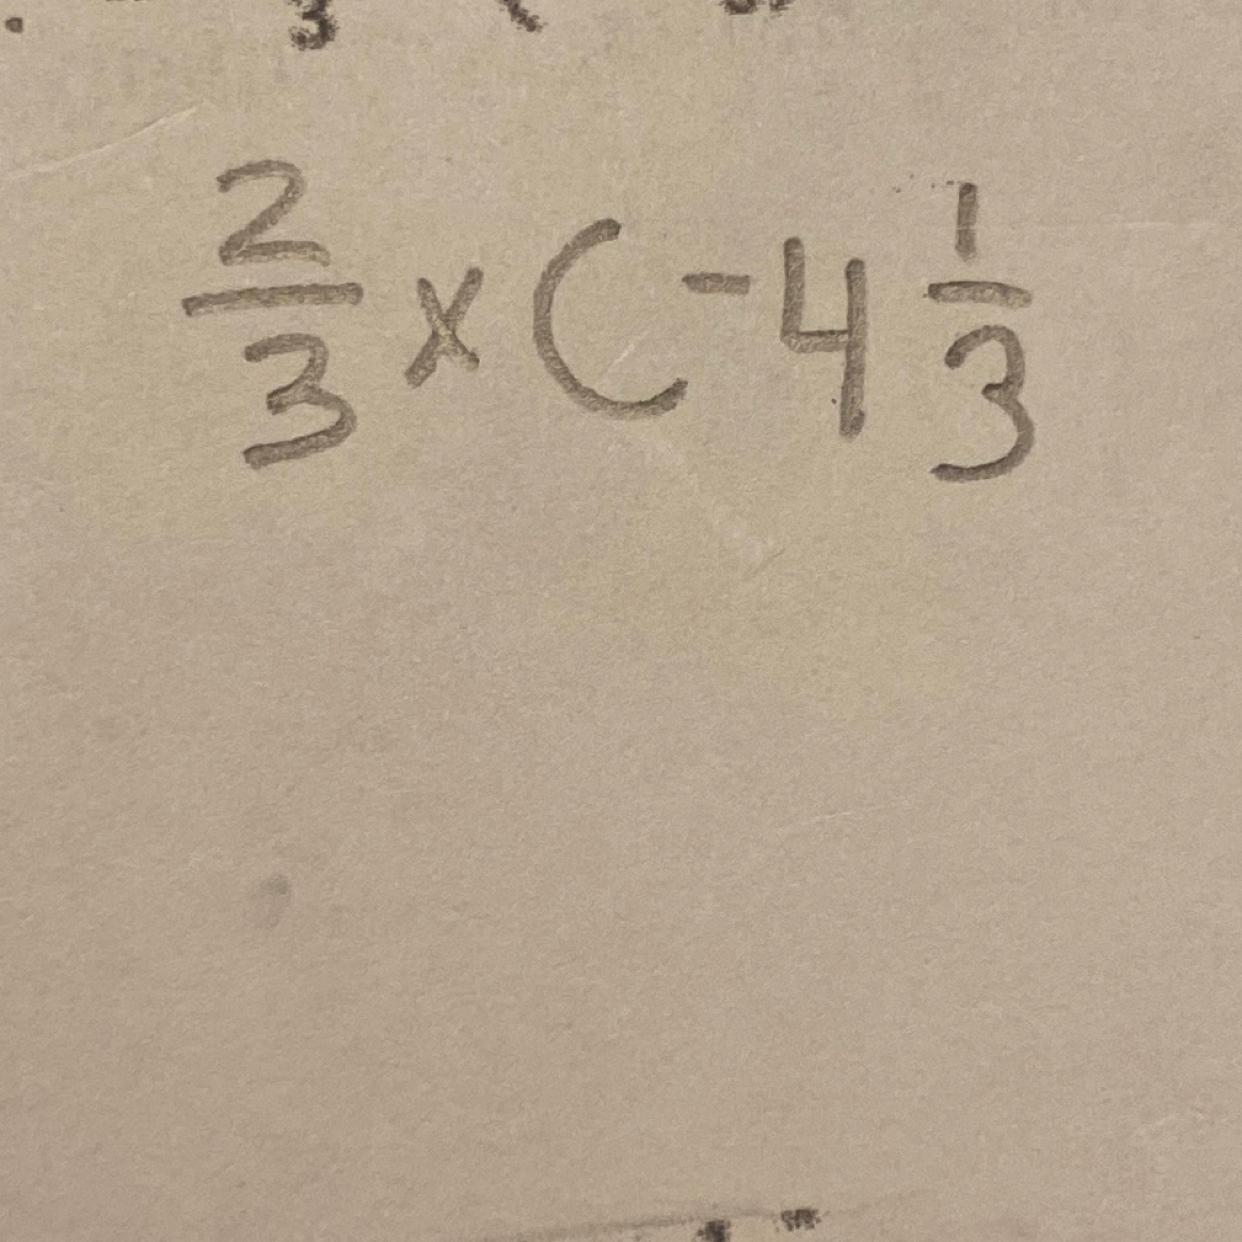 2/3 x (-4 1/3